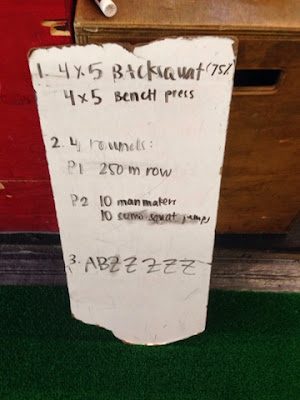 1. 4x5 Backsquat (75%
4x5 Bench press
2. 4 rounds:
P1 250 m row
P2 10 manmakers
10 sumo squat jumps
3. ABZZZZZ